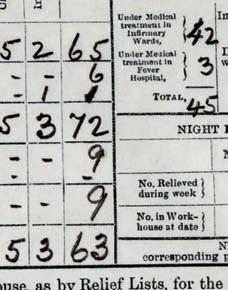 Under Medical
treatment in
Infirmary
Wards,
42
5 2 65
Under Medical
treatment in
Fever
Hospital,
3
- - 6
- 1 1
TOTAL, 45
5 3 72
NIGHT
- - 9
-
No. Relieved
during week
- - 9
No. in Work-
house at date
5 3 63
corresponding
ouse, as by Relief Lists, for the